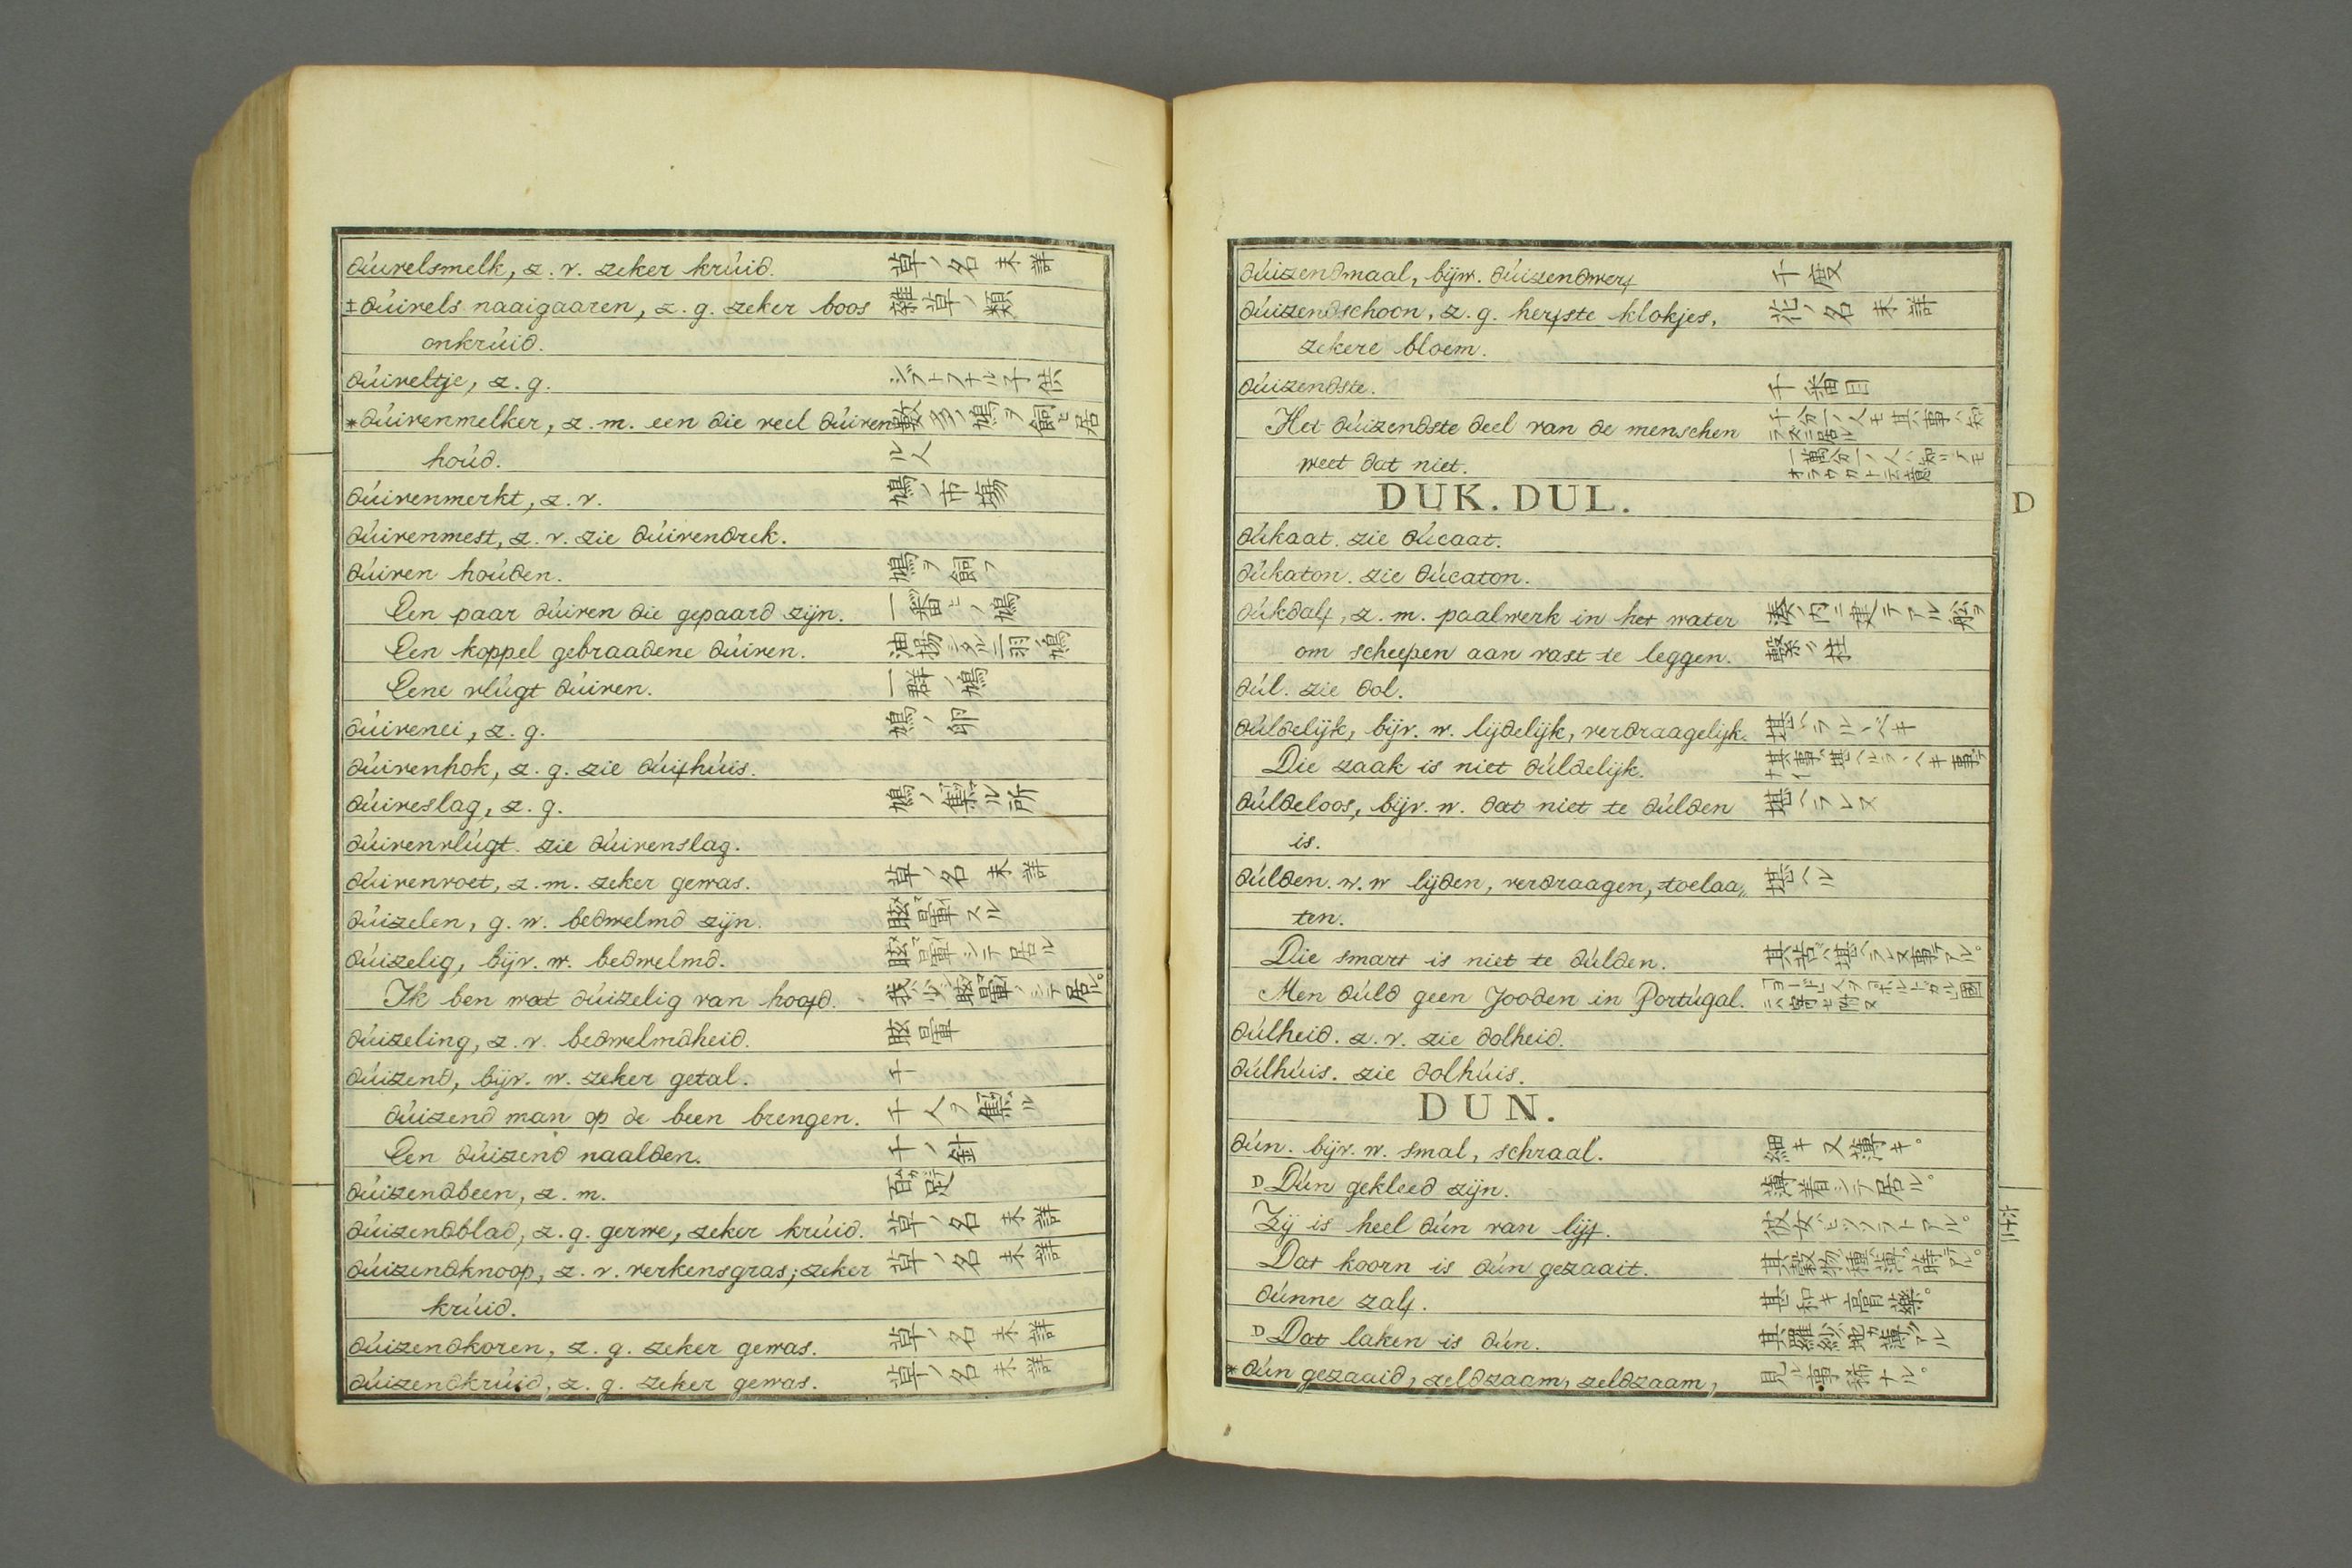 dúivelsmelk, z. v. zeker krúid. 草ノ名 未詳
± dúivels naaigaaren, z. g. zeker boos 雑草ノ類
onkrúid.
dúiveltje, z. g. 子供
* dúivenmelker, z. m. een die veel dúiven 数多ノ鳩ヲ飼ヒ居
hoúd. ル人
dúivenmerkt, z. v. 鳩ノ市場
dúivenmest, z. v. zie dúivendrek.
dúiven hoúden. 鳩ヲ飼フ
Een paar dúiven die gepaard zijn. 一番ヒノ鳩
Een koppel gebraadene dúiven. 油揚ニシタル二羽ノ鳩
Eene vlúgt dúiven. 一群ノ鳩
dúivenei, z. g. 鳩ノ卵
dúivenhok, z. g. zie dúifhúis.
dúiveslag, z. g. 鳩ノ集ル所
dúivenvlúgt. zie dúivenslag.
dúivenvoet, z. m. zeker gewas. 草ノ名 未詳
dúizelen, g. w. bedwelmd zijn. 眩暈スル
dúizelig, bijv. w. bedwelmd. 眩暈シテ居ル
Ik ben wat dúizelig van hoofd. 我少シ眩暈シテ居ル。
dúizeling, z. v. bedwelmdheid. 眩暈
dúizend, bijv. w. zeker getal. 千
dúizend man op de been brengen. 千人ヲ集ル
Een dúizend naalden. 千ノ針
dúizendbeen, z. m. 百足
dúizendblad, z. g. gerwe, zeker krúid. 草ノ名 未詳
dúizendknoop, z. v. verkensgras; zeker 草ノ名 未詳
krúid.
dúizendkoren, z. g. zeker gewas. 草ノ名 未詳
dúizendkrúid, z. g. zeker gewas. 草ノ名 未詳
dúizendmaal, bijw. dúizendwerf 千度
dúizendschoon, z. g. herfste klokjes, 花ノ名 未詳
zekere bloem.
dúizendste. 千番目
Het dúizendste deel van de menschen 千分一ノ人モ其事ハ知
weet dat niet.
DUK. DUL.
D
dúkaat. zie dúcaat.
dúkaton. zie dúcaton.
dúkdalf, z. m. paalwerk in het water 湊ノ内ニ建テアル船ヲ
om scheepen aan vast te leggen. 繋グ柱
dúl. zie dol.
dúldelijk, bijv. w. lijdelijk, verdraagelijk. 堪ヘラルベキ
Die zaak is niet dúldelijk.
dúldeloos, bijv. w. dat niet te dúlden 堪ヘラレヌ
is.
dúlden. w. w lijden, verdraagen, toelaa„ 堪ヘル
ten.
Die smart is niet te dúlden. 其苦ハ堪ヘラレヌ事デアル。
Men dúld geen Jooden in Portúgal.
dúlheid. z. v. zie dolheid.
dúlhúis. zie dolhúis.
DUN.
dún. bijv. w. smal, schraal. 細キ又薄キ。
D Dún gekleed zijn. 薄着シテ居ル。
Zij is heel dún van lijf.
Dat koorn is dún gezaait.
dúnne zalf. 甚和キ膏薬。
D Dat laken is dún. 其羅紗地ガ薄クアル
* dún gezaaid, zeldzaam, zeldzaam, 見ル事稀ナル。